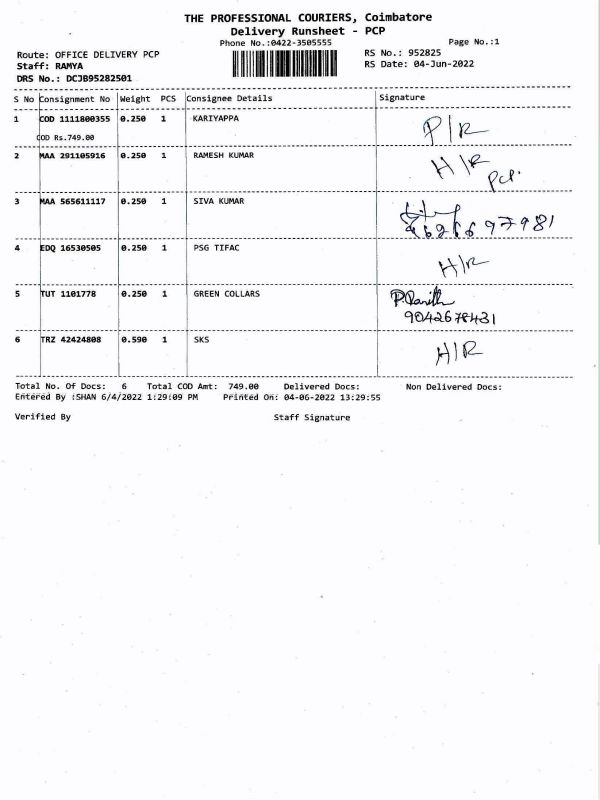 THE PROFESSIONAL COURIERS, Coimbatore
Delivery Runsheet - PCP
Phone No.:0422-3505555 Page No.:1
Route: OFFICE DELIVERY PCP RS No.: 952825
Staff: RAMYA RS Date: 04-Jun-2022
DRS No.: DCJB95282501
S No Consignment No Weight PCS Consignee Details Signature
1 COD 1111800355 0.250 1 KARIYAPPA P/R
COD Rs.749.00
2 MAA 291105916 0.250 1 RAMESH KUMAR H/R
pcp.
3 MAA 565611117 0.250 1 SIVA KUMAR
4 EDQ 16530505 0.250 1 PSG TIFAC H/R
5 TUT 1101778 0.250 1 GREEN COLLARS
9042678431
6 TRZ 42424808 0.590 1 SKS H/R
Total No. Of Docs: 6 Total COD Amt: 749.00 Delivered Docs: Non Delivered Docs:
Entered By :SHAN 6/4/2022 1:29:09 PM Printed On: 04-06-2022 13:29:55
Verified By Staff Signature